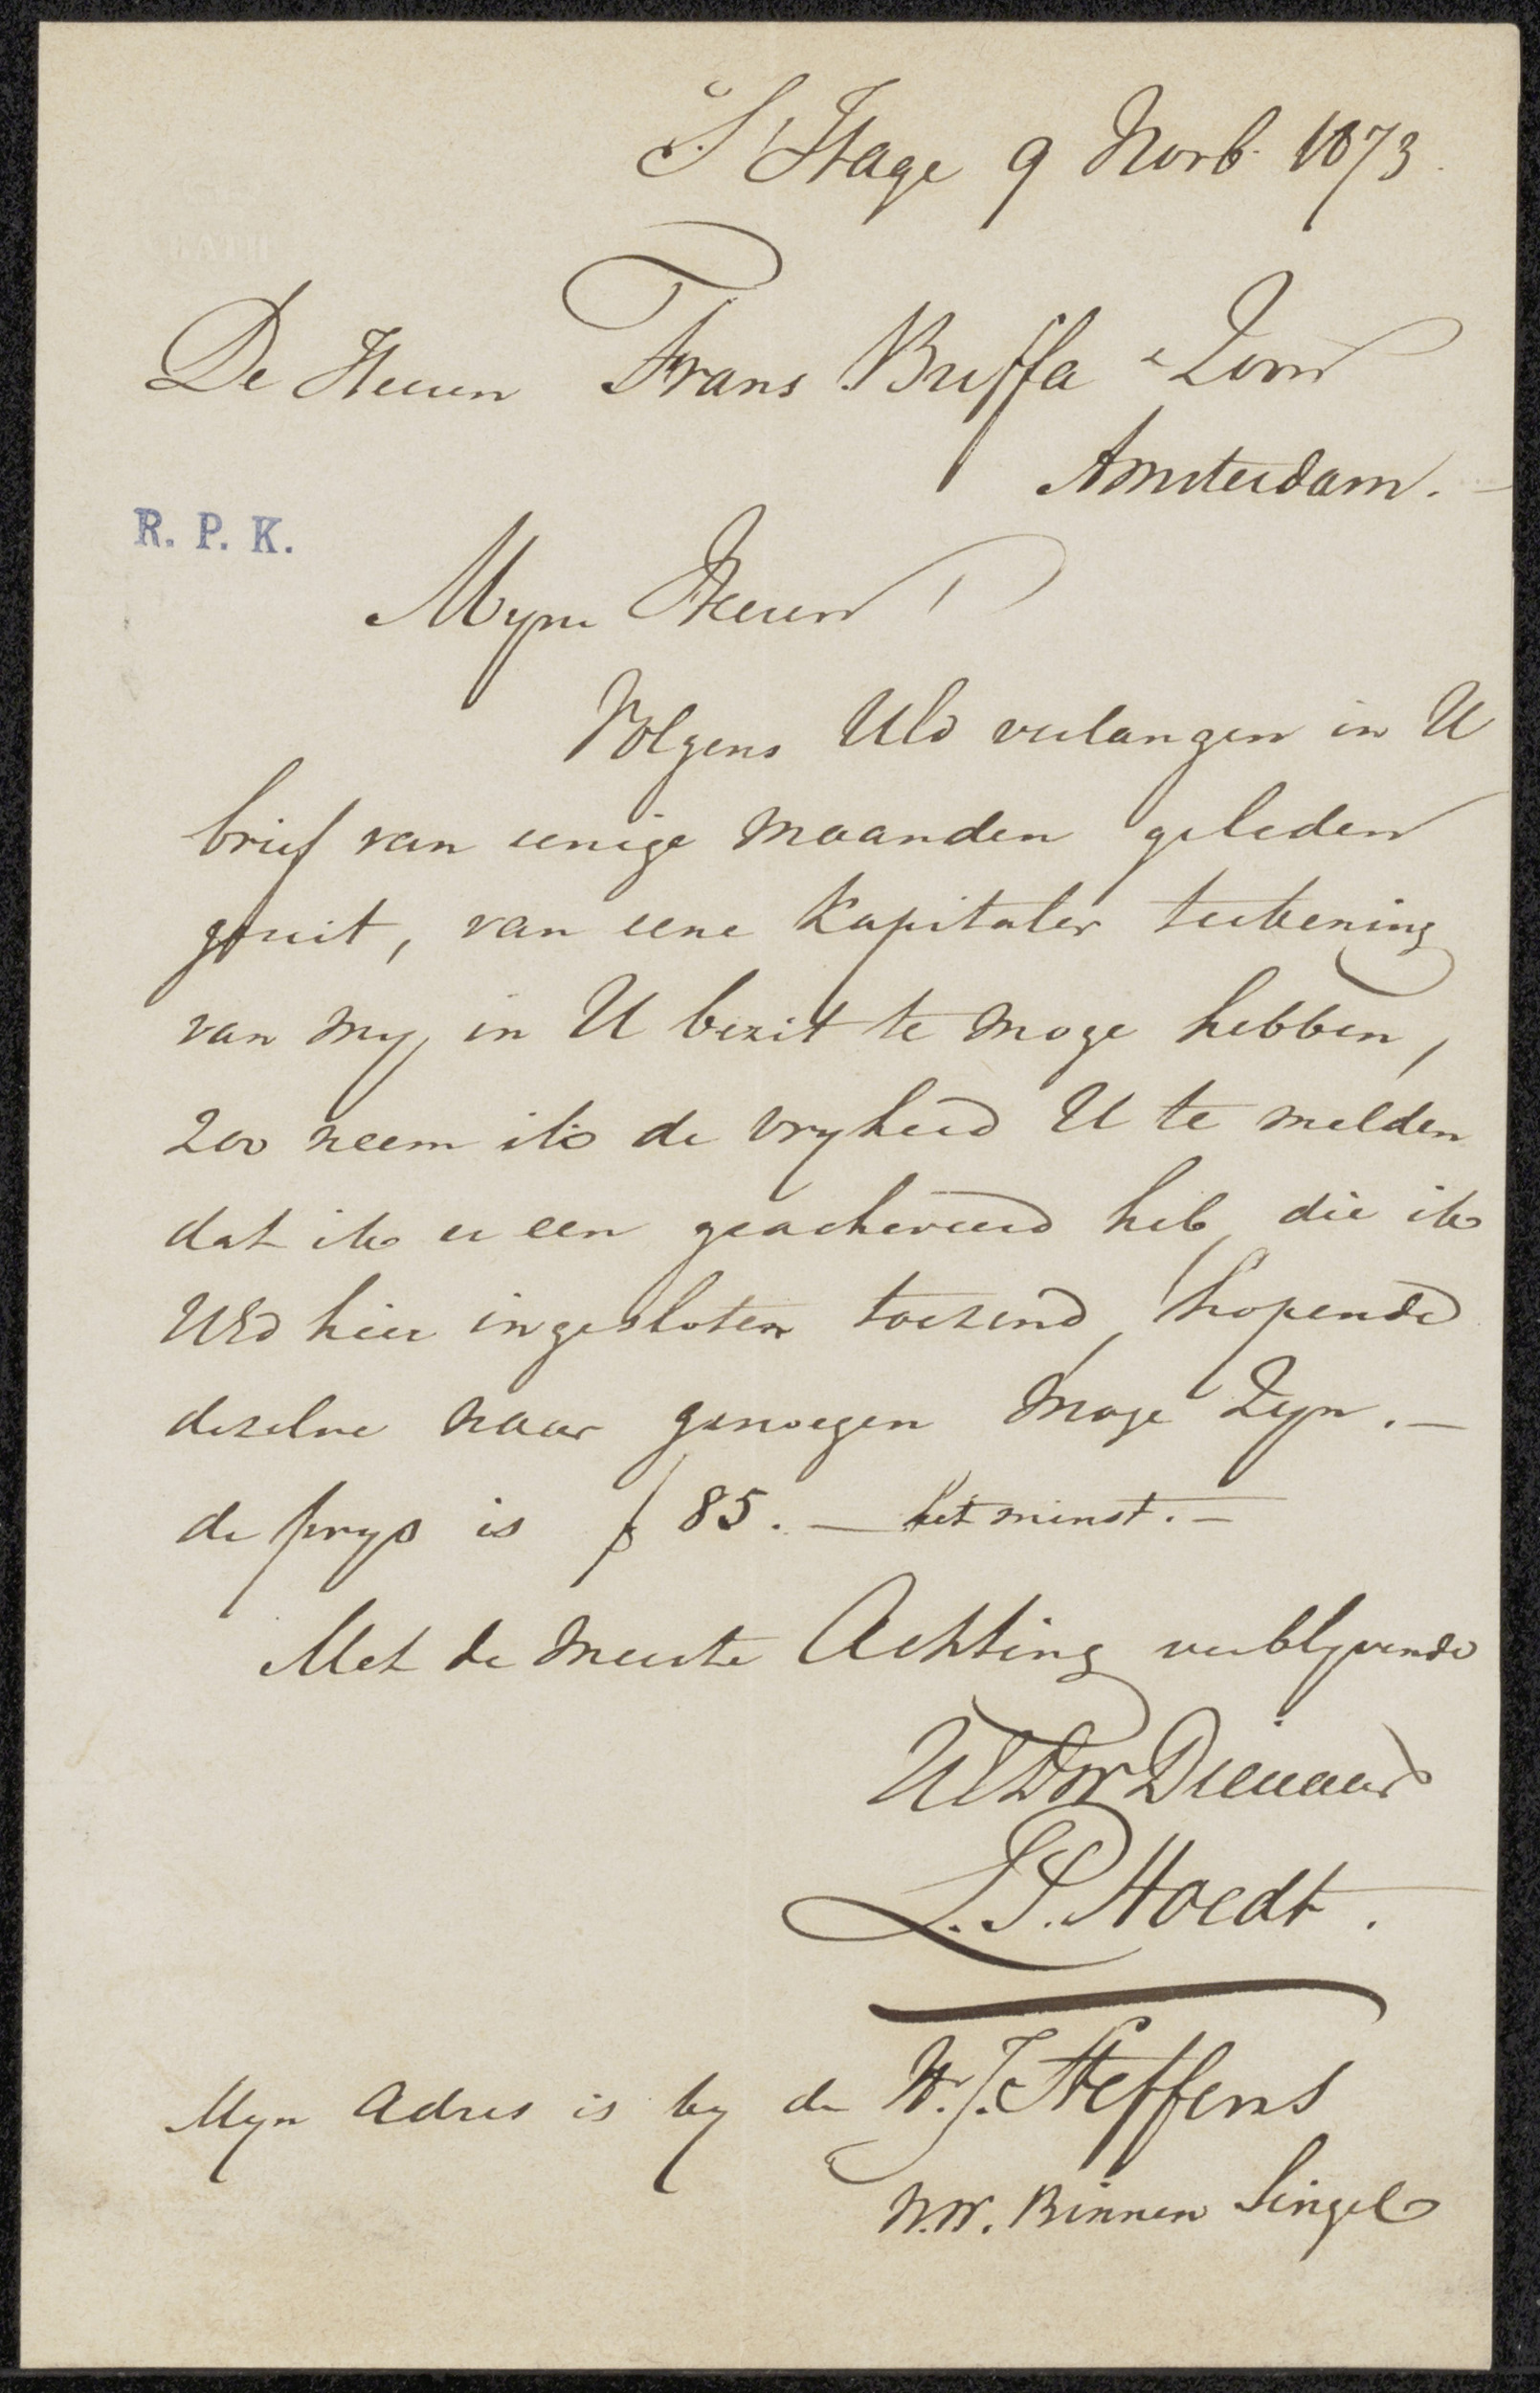 S'Hage 9 Novb. 1873.
De Heeren Frans Buffa & Zoon
Amsterdam. -
R. P. K.
Myne Heeren
Volgens UEd verlangen in U
brief van eenige maanden geleden
geuit, van eene kapitaler teekening
van my, in U bezit te moge hebben,
zoo neem ik de vryheid U te melden
dat ik er een geacheveerd heb, die ik
UEd hier ingesloten toezend, hopende
dezelve naar genoegen moge zyn. -
de prys is ƒ 85. — het minst. -
Met de meeste Achting verblyvende
UEDW Dienaar
L.S. Hoedt.
Myn Adres is by de H.J. Steffens
N.W. Binnen Singel